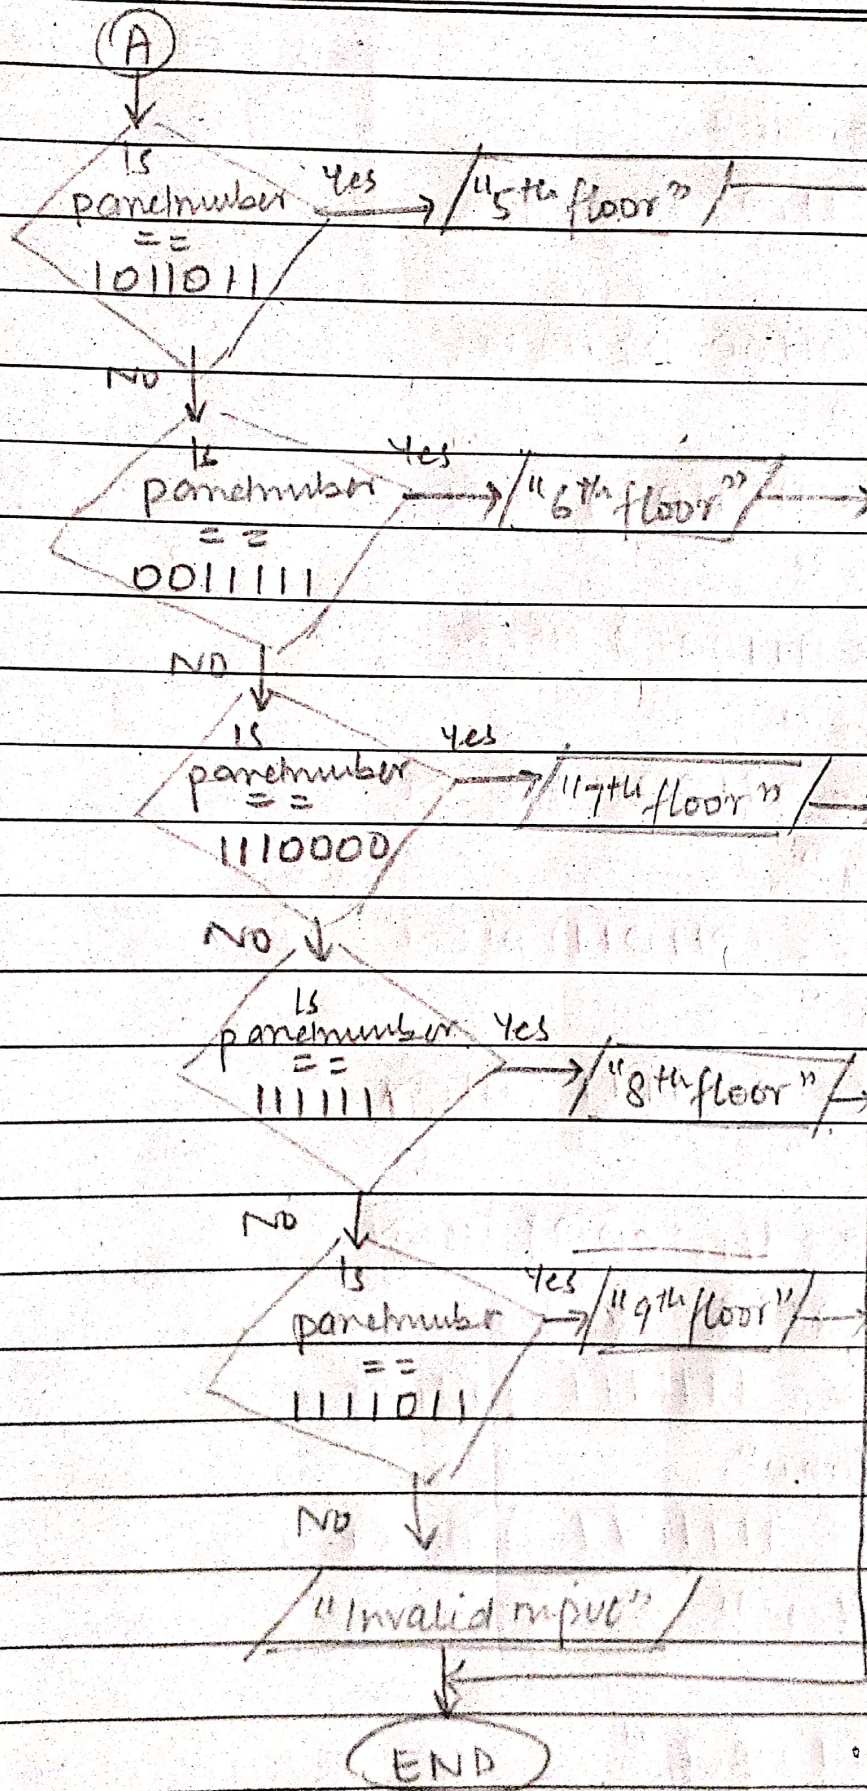 A
Is
panelnumber
==
1011011
Yes
"5th floor"
NO
Is
panelnumber
==
0011111
Yes
"6th floor"
NO
Is
panelnumber
==
1110000
Yes
"7th floor"
NO
Is
panelnumber
==
1111111
Yes
"8th floor"
NO
Is
panelnumber
==
1111011
Yes
"9th floor"
NO
"Invalid input"
END